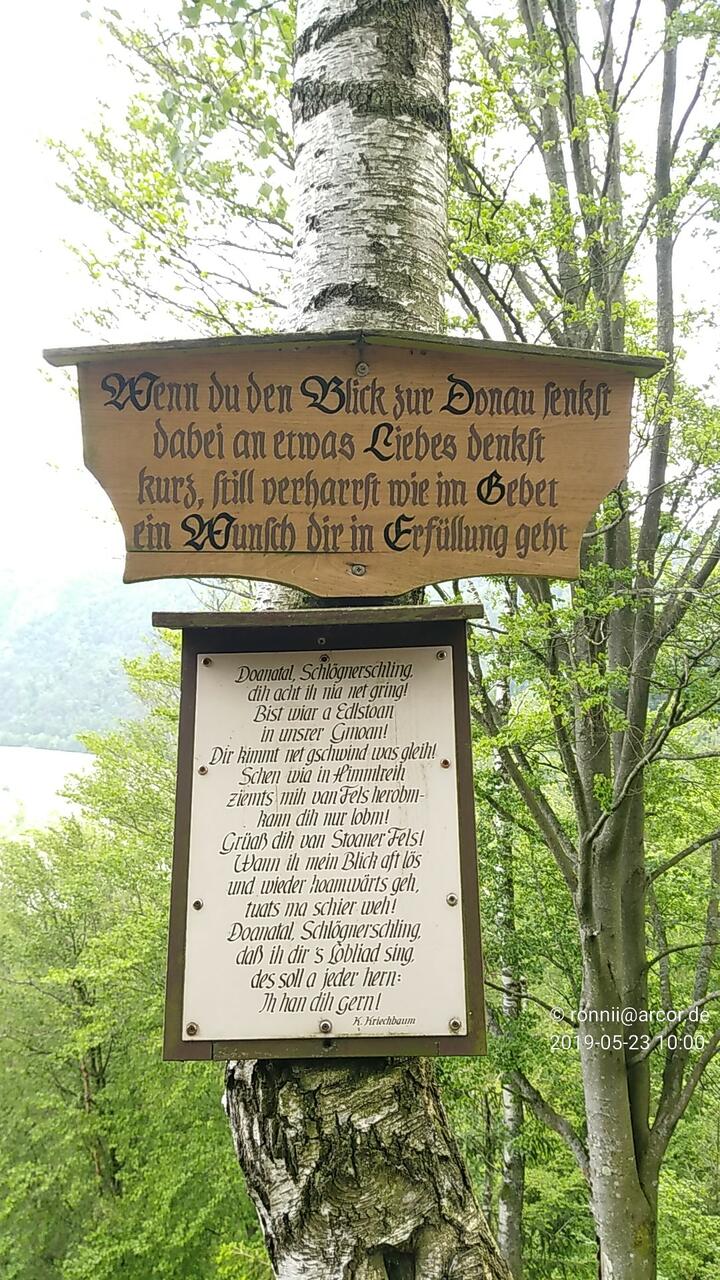 Wenn du den Blick zur Donau senkst
dabei an etwas Liebes denkst
kurz, still verharrst wie im Gebet
ein Wunsch dir in Erfüllung geht
Doanatal, Schlögnerschling,
dih acht ih nia net gring!
Bist wiar a Edlstoan
in unsrer Gmoan!
Dir kimmt net gschwind was gleih!
Schen wia in Himmlreih
ziemts mih van Fels herobm-
kann dih nur lobm!
Grüaß dih van Stoaner Fels!
Wann ih mein Blick aft lös
und wieder hoamwärts geh,
tuats ma schier weh!
Doanatal, Schlögnerschling,
daß ih dir 's Lobliad sing,
des soll a jeder hern:
Ih han dih gern!
K. Kriechbaum
© ronnii@arcor.de
2019-05-23 10:00